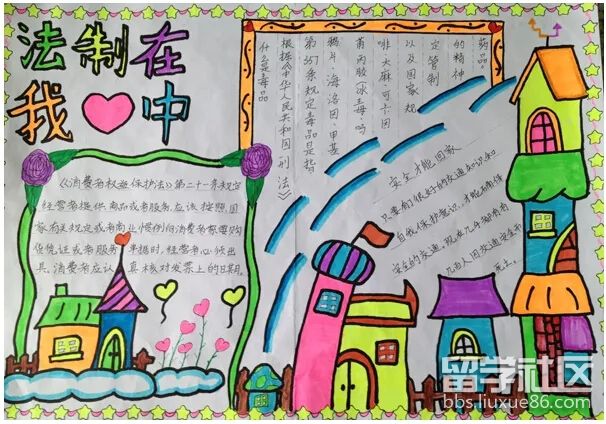 法制在
我中
《消费者权益保护法》第二十一条规定
经营者提供商品或者服务,应该按照国
家有关规定或者商业惯例向消费者索要购
货凭证或者服务单据时,经营者必须出
具。消费者应认真核对发票上的日期。
什么是毒品
根据《中华人民共和国刑法》
第357条规定毒品是指
鸦片、海洛因、甲基
丙胺、冰毒、吗
啡、大麻、可卡因
以及国家规
定管制
的精神
药品。
安全才能回家
只要有很好的交通知识和
自我保护意识,才能
安全的交通。现在几乎都有
几百人因交通安全而
死亡。
留学社区
bbs.liuxue86.com